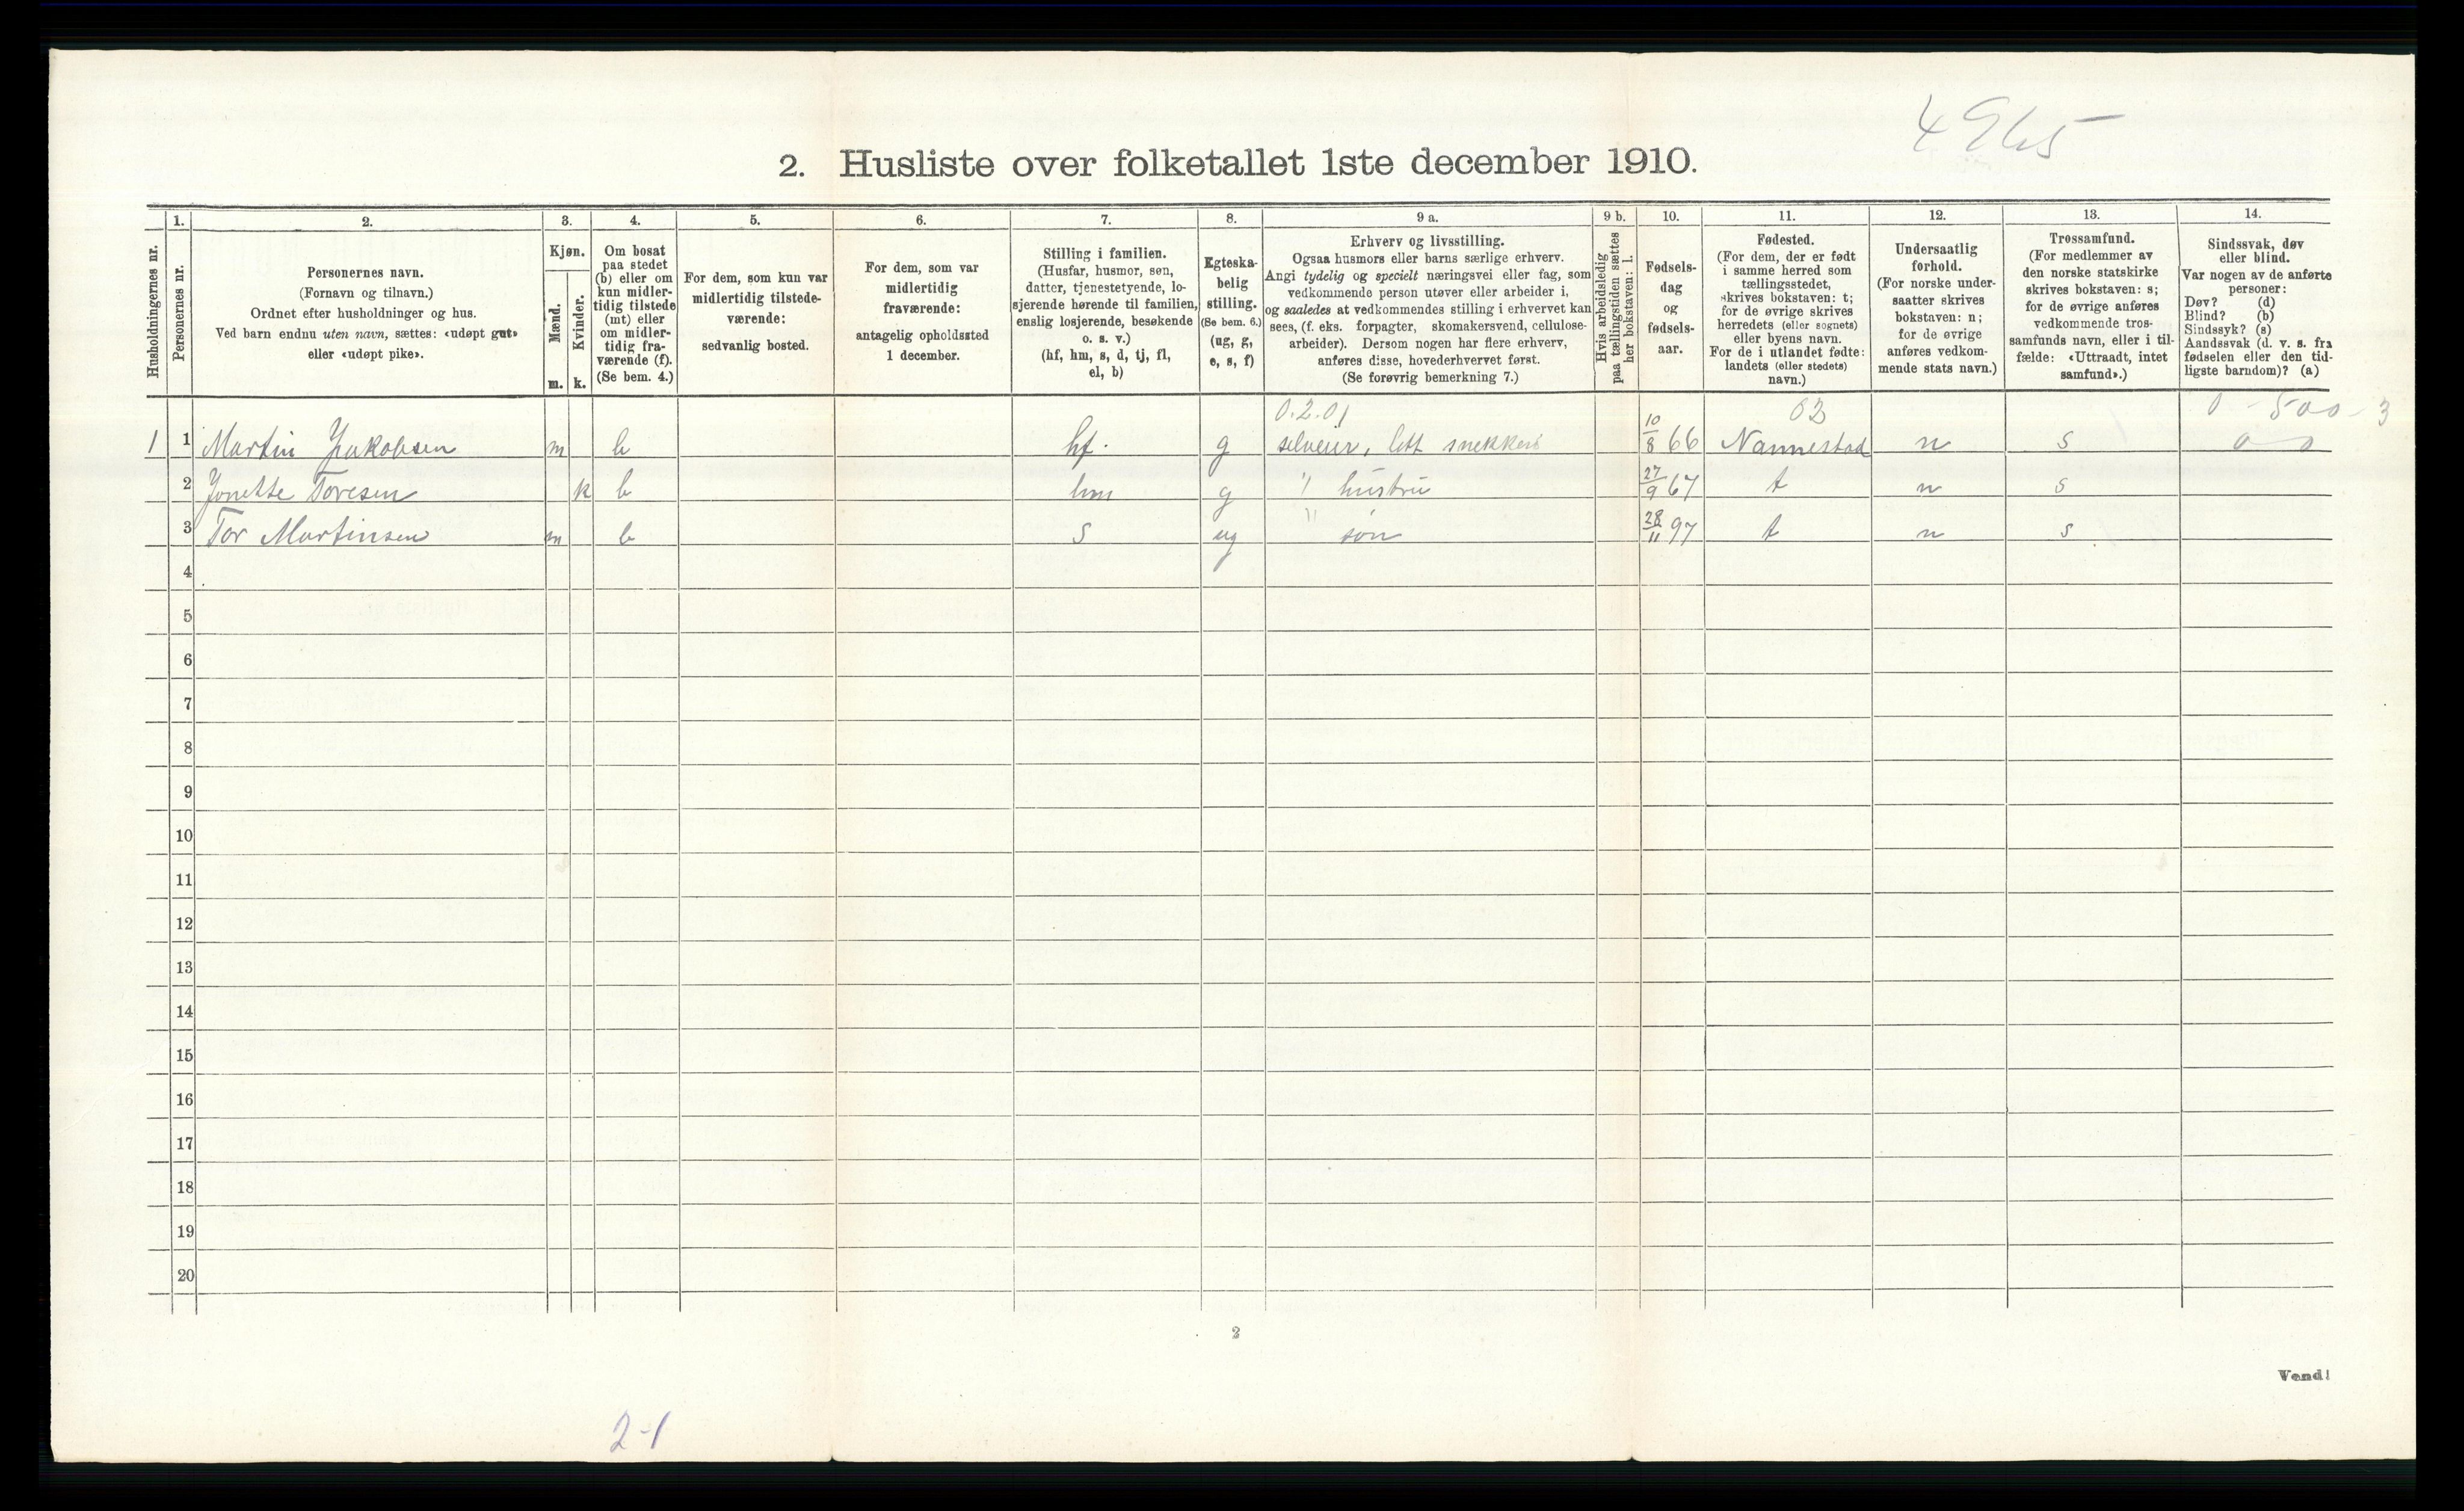 4965
2. Husliste over folketallet 1ste december 1910.
Husholdningernes nr.
1.
Personernes nr.
2.
Personernes navn.
(Fornavn og tilnavn.)
Ordnet efter husholdninger og hus.
Ved barn endnu uten navn, sættes: «udøpt gut»
eller «udøpt pike».
3.
Kjøn.
Mænd.
Kvinder.
m. k.
4.
Om bosat
paa stedet
(b) eller om
kun midler-
tidig tilstede
(mt) eller
om midler-
tidig fra-
værende (f).
(Se bem. 4.)
5.
For dem, som kun var
midlertidig tilstede-
værende:
sedvanlig bosted.
6.
For dem, som var
midlertidig
fraværende:
antagelig opholdssted
1 december.
7.
Stilling i familien.
(Husfar, husmor, søn,
datter, tjenestetyende, lo-
sjerende hørende til familien,
enslig losjerende, besøkende
o. s. v.)
(hf, hm, s, d, tj, fl,
el, b)
8.
Egteska-
belig
stilling.
(Se bem. 6.)
(ug, g,
e, s, f)
9 a.
Erhverv og livsstilling.
Ogsaa husmors eller barns særlige erhverv.
Angi tydelig og specielt næringsvei eller fag, som
vedkommende person utøver eller arbeider i,
og saaledes at vedkommendes stilling i erhvervet kan
sees, (f. eks. forpagter, skomakersvend, cellulose-
arbeider). Dersom nogen har flere erhverv,
anføres disse, hovederhvervet først.
(Se forøvrig bemerkning 7.)
9 b.
Hvis arbeidsledig
paa tællingstiden sættes
her bokstaven: l.
10.
Fødsels-
dag
og
fødsels-
aar.
11.
Fødested.
(For dem, der er født
i samme herred som
tællingsstedet,
skrives bokstaven: t;
for de øvrige skrives
herredets (eller sognets)
eller byens navn.
For de i utlandet fødte:
landets (eller stedets)
navn.)
12.
Undersaatlig
forhold.
(For norske under-
saatter skrives
bokstaven: n;
for de øvrige
anføres vedkom-
mende stats navn.)
13.
Trossamfund.
(For medlemmer av
den norske statskirke
skrives bokstaven: s;
for de øvrige anføres
vedkommende tros-
samfunds navn, eller i til-
fælde: «Uttraadt, intet
samfund».)
14.
Sindssvak, døv
eller blind.
Var nogen av de anførte
personer:
Døv? (d)
Blind? (b)
Sindssyk? (s)
Aandssvak (d. v. s. fra
fødselen eller den tid-
ligste barndom)? (a)
0.2.01 03 0 - 500 - 3
1 1 Martin Jakobsen m b hf. g selveier, litt snekkeri 10/8 66 Nannestad n s 0 0
2 Jonette Toresen k b hm g " hustru 27/9 67 t n s
3 Tor Martinsen m b s ug " søn 28/11 97 t n s
4
5
6
7
8
9
10
11
12
13
14
15
16
17
18
19
20
2
Vend!
2-1